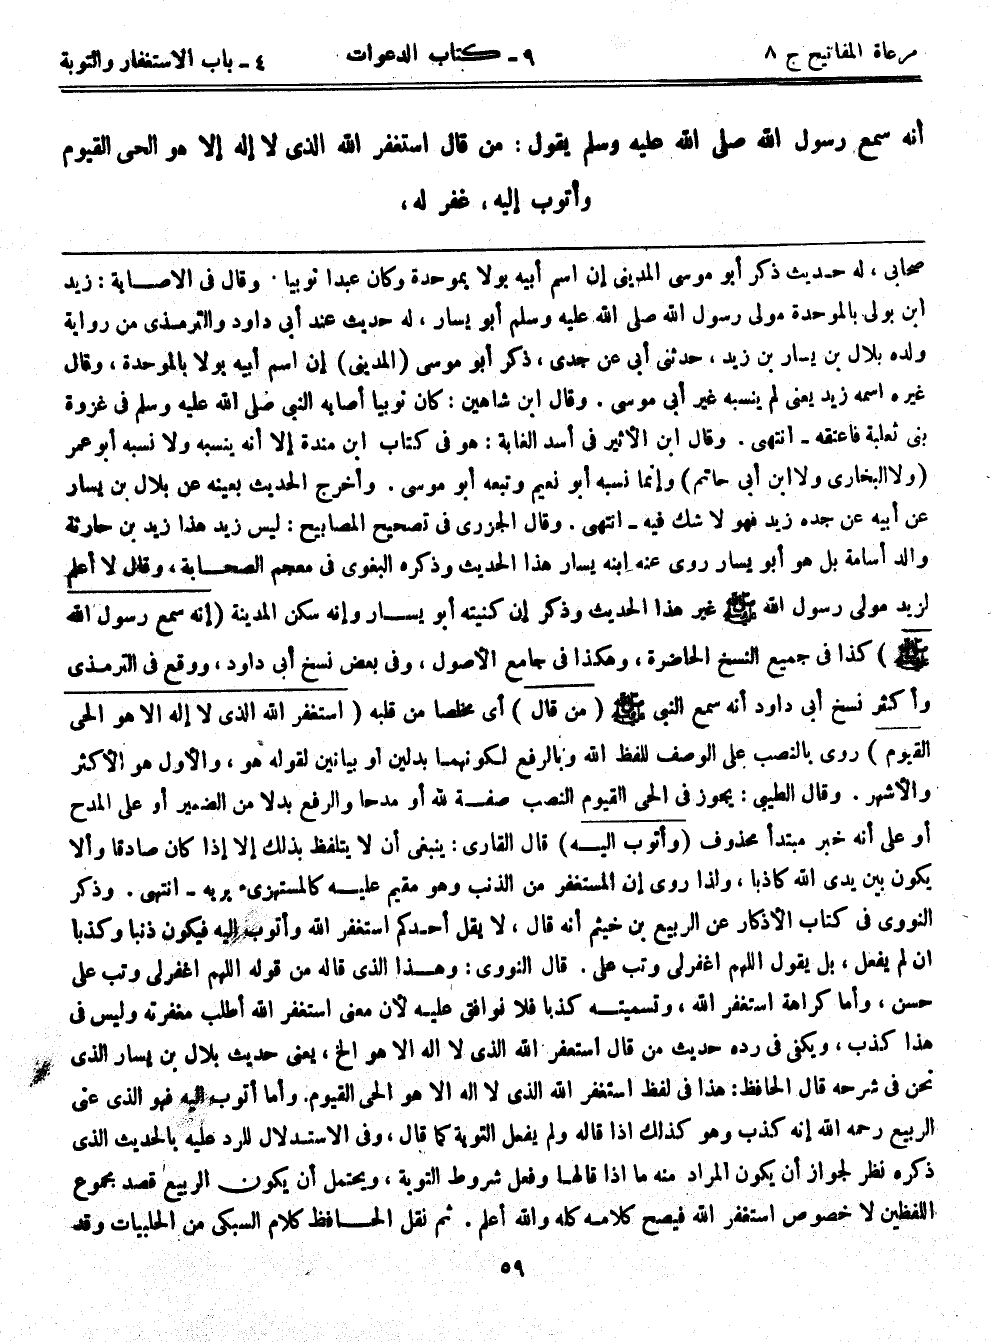 مرعاة المفاتيح ج ٨
٩ ـ كتاب الدعوات
٤ ـ باب الاستغفار والتوبة
أنه سمع رسول الله صلى الله عليه وسلم يقول : من قال استغفر الله الذى لا إله إلا هو الحى القيوم
وأتوب إليه ، غفر له ،
صحابى ، له حديث ذكر أبو موسى المدينى إن اسم أبيه بولا بموحدة وكان عبدا نوبيا · وقال فى الاصابة : زيد
ابن بولى بالموحدة مولى رسول الله صلى الله عليه وسلم أبو يسار ، له حديث عند أبى داود والترمذى من رواية
ولده بلال بن يسار بن زيد ، حدثنى أبى عن جدى ، ذكر أبو موسى (المدينى) إن اسم أبيه بولا بالموحدة ، وقال
غيره اسمه زيد يعنى لم ينسبه غير أبى موسى . وقال ابن شاهين : كان نوبيا أصابه النبى صلى الله عليه وسلم فى غزوة
بنى ثعلبة فاعتقه ـ انتهى . وقال ابن الأثير فى أسد الغابة : هو فى كتاب ابن مندة إلا أنه ينسبه ولا نسبه أبو عمر
(ولا البخارى ولا ابن أبى حاتم) وإنما نسبه أبو نعيم وتبعه أبو موسى . وأخرج الحديث بعينه عن بلال بن يسار
عن أبيه عن جده زيد فهو لا شك فيه ـ انتهى . وقال الجزرى فى تصحيح المصابيح : ليس زيد هذا زيد بن حارثة
والد أسامة بل هو أبو يسار روى عنه إبنه يسار هذا الحديث وذكره البغوى فى معجم الصحابة ، وقال لا أعلم
لزيد مولى رسول الله ﷺ غير هذا الحديث وذكر إن كنيته أبو يسار وإنه سكن المدينة (إنه سمع رسول الله
ﷺ ) كذا فى جميع النسخ الحاضرة ، وهكذا فى جامع الأصول ، وفى بعض نسخ أبى داود ، ووقع فى الترمذى
وأكثر نسخ أبى داود أنه سمع النبى ﷺ ( من قال ) أى مخلصا من قلبه ( استغفر الله الذى لا إله الا هو الحى
القيوم ) روى بالنصب على الوصف للفظ الله وبالرفع لكونهما بدلين أو بيانين لقوله هو ، والأول هو الأكثر
والأشهر . وقال الطيبى : يجوز فى الحى القيوم النصب صفة لله أو مدحا والرفع بدلا من الضمير أو على المدح
أو على أنه خبر مبتدأ محذوف (وأتوب اليه) قال القارى : ينبغى أن لا يتلفظ بذلك إلا إذا كان صادقا وألا
يكون بين يدى الله كاذبا ، ولذا روى إن المستغفر من الذنب وهو مقيم عليه كالمستهزىء بربه ـ انتهى . وذكر
النووى فى كتاب الأذكار عن الربيع بن خيثم أنه قال ، لا يقل أحدكم استغفر الله وأتوب إليه فيكون ذنبا وكذبا
ان لم يفعل ، بل يقول اللهم اغفرلى وتب على . قال النووى : وهذا الذى قاله من قوله اللهم اغفرلى وتب على
حسن ، وأما كراهة استغفر الله ، وتسميته كذبا فلا نوافق عليه لأن معنى استغفر الله أطلب مغفرته وليس فى
هذا كذب ، ويكفى فى رده حديث من قال أستعفر الله الذى لا اله الا هو الخ ، يعنى حديث بلال بن يسار الذى
نحن فى شرحه قال الحافظ: هذا فى لفظ استغفر الله الذى لا اله الا هو الحى القيوم. وأما أتوب إليه فهو الذى عنى
الربيع رحمه الله إنه كذب وهو كذلك اذا قاله ولم يفعل التوبة كما قال ، وفى الاستدلال للرد عليه بالحديث الذى
ذكره نظر لجواز أن يكون المراد منه ما اذا قالها وفعل شروط التوبة ، ويحتمل أن يكون الربيع قصد مجموع
اللفظين لا خصوص استغفر الله فيصح كلامه كله والله أعلم . ثم نقل الحافظ كلام السبكى من الحلبيات وقد
٥٩